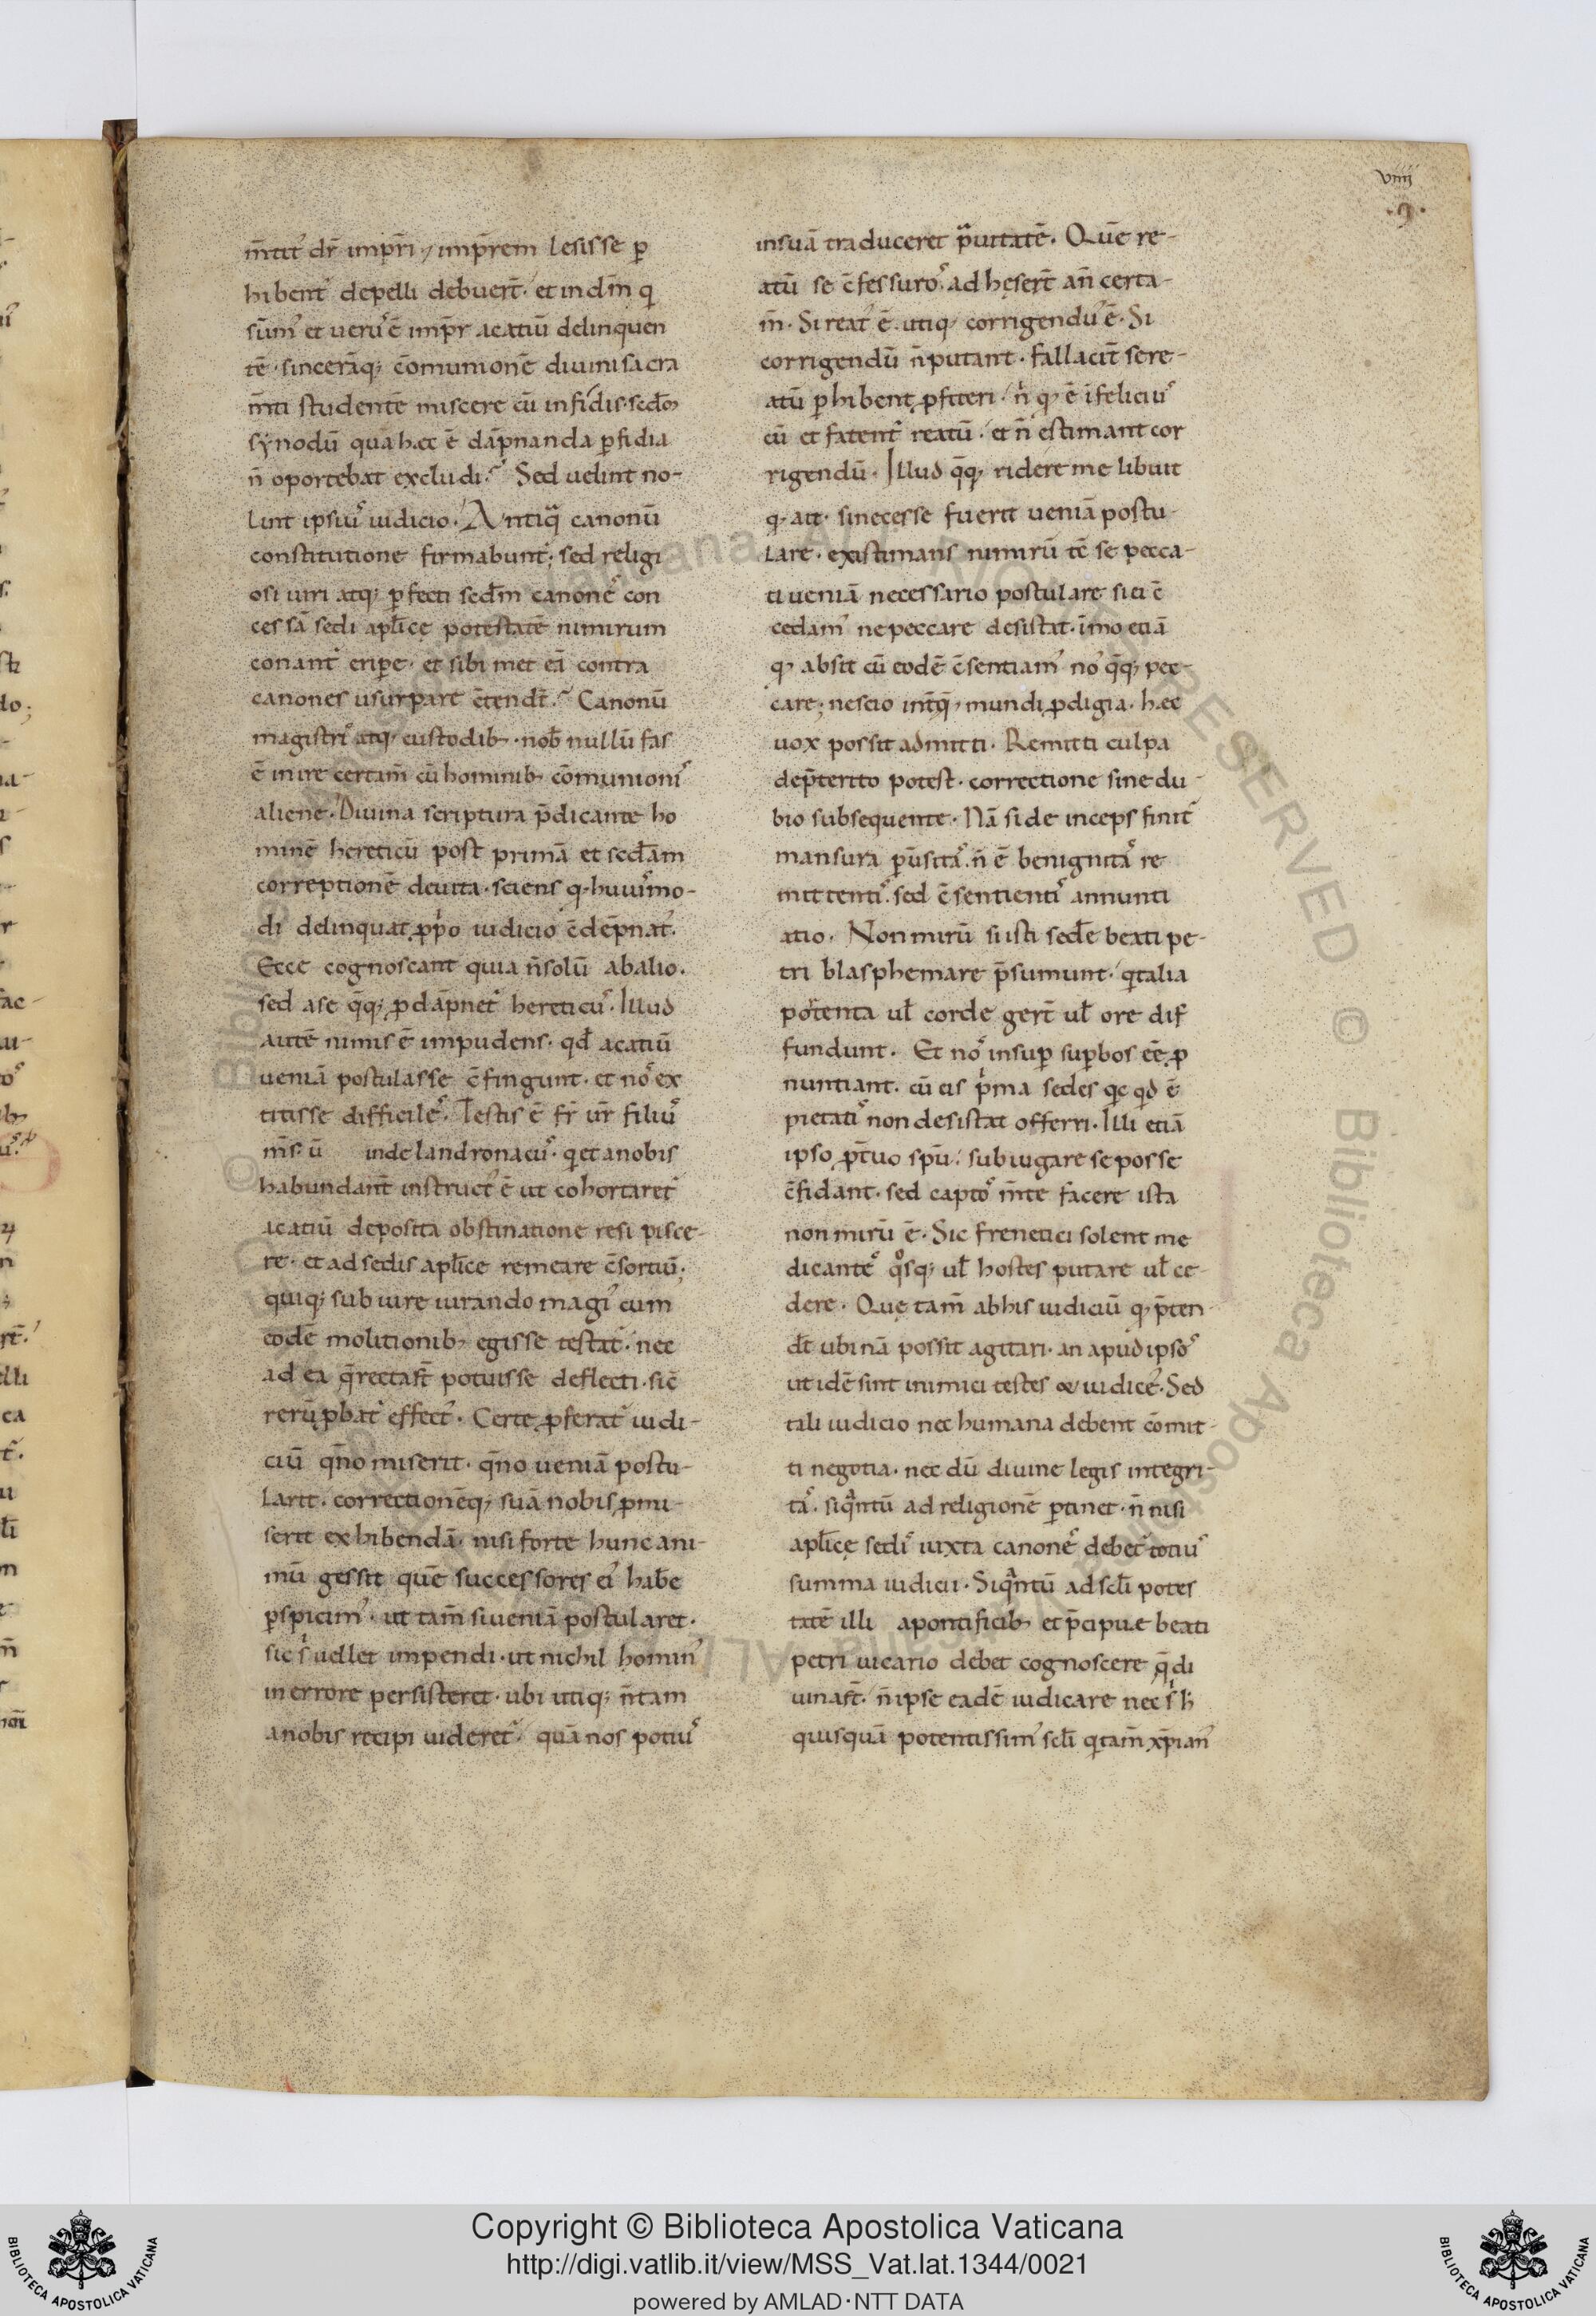 viiij
·9·
m̄tit᷑ dr̄ imp̄ri, imp̄rem lesisse ꝑ
hibent᷑ depelli debuert̄· et indm̄ q
sūm᷒ et ueru᷒ ē imp̄r acatiū delinquen
tē· sincerāq; cōmunionē diuini sacra
m̄ti studentē miscere cū infidis· sed
sẏnodū qua hęc ē dāpnanda ꝑfidia
n̄ oportebat excludi. Sed uelint no-
lint ipsiu᷒ iudicio. Antiqͣ canonū
constitutione firmabunt᷑; sed religi
osi uiri atq; ꝑfecti sedm̄ canone᷒ con
cessā sedi apl̄icę potestatē nimirum
conant᷑ eriꝑe· et sibi met eā contra
canones usurpare c̄tendt̄. Canonū
magistri᷒ atq; custodib; · nob̄ nullū fas
ē inire certam̄ cū hominib; cōmunioni᷒
aliene. Diuina scriptura p̄dicante ho
minē hereticū post primā et scdām
correptionē deuita· sciens q· huui᷒mo-
di delinquat ꝓpͥo iudicio c̄dēpnat᷑.
Ecce cognoscant quia n̄ solū abalio.
sed ase q̄q; ꝓdāpnet᷑ hereticu᷒. Illud
autē nimis ē impudens· qd̄ acatiū
ueniā postulasse c̄fingunt· et no᷒ ex
titisse difficile᷒. Testis ē fr̄ ur̄ filiu᷒
m̄s ū inde landronacu᷒· q et anobis
habundant̄ instruct᷒ ē ut cohortaret᷑
acatiū deposita obstinatione resipisce-
re· et ad sedis apl̄ice remeare c̄sortiū;
quiq; sub iure iurando magi᷒ cum
eodē molitionib; egisse testat᷑· nec
ad ea q̄ rectast̄ potuisse deflecti· sic̄
rerū ꝓbat᷑ effect᷒. Certe ꝓferat᷑ iudi-
ciū q̄no miserit· q̄no ueniā postu-
larit· correctionēq; suā nobis ꝓmi-
serit exhibendā· nisi forte hunc ani-
mū gessit quē successores ei᷒ hab̄e
ꝑspicim᷒· ut tam̄ si ueniā postularet·
sic sͥ uellet impendi· ut nichil homin᷒
in errore persisteret· ubi utiq; n̄tam
anobis recipi uideret᷑ quā nos potiu᷒
insuā traduceret pͣuitatē. Quē re-
atū se c̄fessuro᷒ adhęsert̄ an̄ certa-
m̄. Si reat᷒ ē· utiq; corrigendu᷒ ē. Si
corrigendū n̄ putant· fallacit̄ se re-
atū ꝑhibent ꝓfiteri· n̄ q; ē ifeliciu᷒
cū et fatent᷑ reatū· et n̄ estimant cor
rigendū. Illud q̄q; ridere me libuit
q· ait· sinecesse fuerit ueniā postu-
lare· existimans nimirū tē se pecca-
ti ueniā necessario postulare si ei c̄
cedam᷒ ne peccare desistat· īmo etiā
q; absit cū eodē c̄sentiam᷒ no᷒ q̄q; pec-
care; nescio int̄ q̄; mundi ꝓdigia· hęc
uox possit admitti. Remitti culpa
dep̄terito potest· correctione sine du-
bio subsequente. Nā si de inceps finit̄
mansura ꝑu̅sita᷒· n̄ ē benignita᷒ re
mittenti᷒· sed c̄sentienti᷒ annunti
atio. Non mirū si isti sedē beati pe-
tri blasphemare p̄sumunt· q talia
potenta ul̄ corde gert̄ ul̄ ore dif
fundunt. Et no᷒ insuꝑ suꝑbos eē ꝓ
nuntiant· cū eis pͥma sedes qc qd ē
pietati᷒ non desistat offerri. Illi etiā
ipso ꝓt̄uo spū· subiugare se posse
c̄fidant· sed capto᷒ m̄te facere ista
non mirū ē. Sic frenetici solent me
dicante᷒ qͦsq; ul̄ hostes putare ul̄ ce-
dere. Quę tam̄ abhis iudiciū q· p̄ten-
dt̄ ubi nā possit agitari· an apud ipso᷒
ut idē sint inimici testes & iudice᷒. Sed
tali iudicio nec humana debent cōmit-
ti negotia· nec dū diuine legis integri-
ta᷒· siqͣntū ad religionē ꝑtinet· n̄ nisi
apl̄icę sedi᷒ iuxta canone᷒ debet᷑ totiu᷒
summa iudicii. Siqͣntū ad scl̄i potes
tatē illi apontificib; et p̄cipue beati
petri uicario debet cognoscere q̄ di
uinast̄· n̄ ipse eadē iudicare nec sͥ h̄
quisquā potentissim᷒ scl̄i q tam̄ xp̄ian᷒
Copyright © Biblioteca Apostolica Vaticana
http://digi.vatlib.it/view/MSS_Vat.lat.1344/0021
powered by AMLAD·NTT DATA